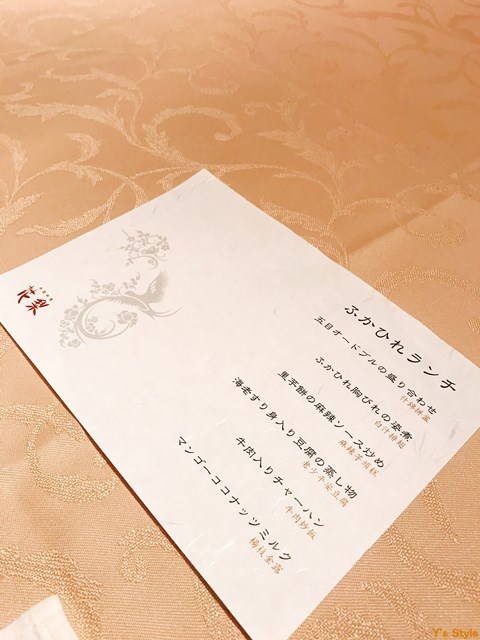 ふかひれランチ
五目オードブルの盛り合わせ
什錦拼盆
ふかひれ胸びれの姿煮
白汁排翅
里芋餅の麻辣ソース炒め
海老すり身入り豆腐の蒸し物
牛肉入りチャーハン
牛肉炒飯
マンゴーココナッツミルク
楊枝金露
花梨
Y's Style